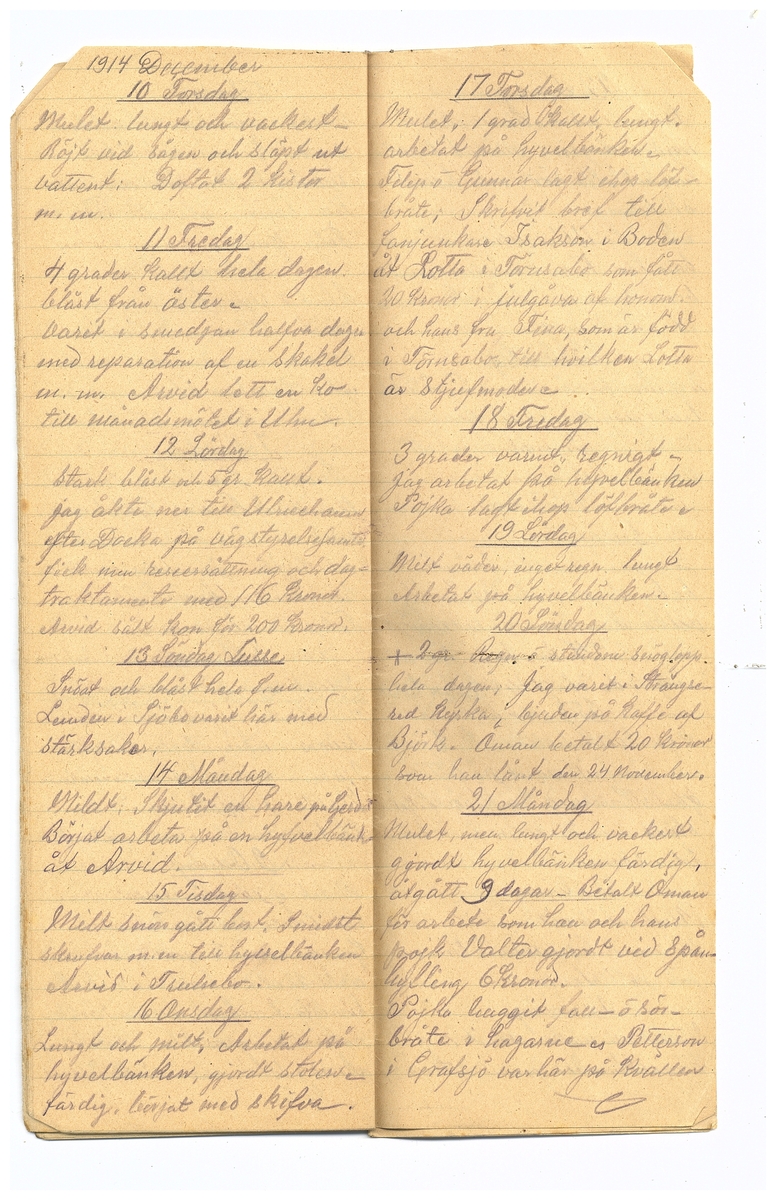 1914 December
10 Torsdag
Mulet. lungt och vackert –
Röjt vid sågen och släpt ut
vattent; 2 Kistor
m. m.
11 Fredag
4 grader kallt hela dagen.
blåst från öster –
varit i smedjan halfva dagen
med reparation af en skakel
m. m. Arvid lett en ko
till månadsmötet i Ulrn.
12 Lördag
Stark blåst och 5 gr. kallt.
jag åkte ner till Ulricehamn
efter Docka på vägstyrelsesamtr
fick min reseersättning och dag-
traktamente med 116 Kronor.
Arvid sålt kon för 200 Kronor.
13 Söndag Lusse
Snöat och blåst hela f.m.
Lundén i Sjöbo varit här med
stärksaker.
14 Måndag
Mildt, Skjutit en hare på Gerdet
Börjat arbeta på en hyfvelbänk
åt Arvid.
15 Tisdag
Milt snön gått bort. Smidt
skrufvar m.m till hyvelbänken
Arvid i Trulsebo.
16 Onsdag
Lungt och milt. Arbetat på
hyvelbänken, gjordt stolen –
färdig. börjat med skifva.
17 Torsdag
Mulet, 1 grad kallt, lungt.
arbetat på hyvelbänken –
Filip o Gunnar lagt ihop löf-
bråte; Skrifvit bref till
fanjunkare Isakson i Boden
åt Lotta i Törnsabo som fått
20 Kronor i julgåva af honom.
och hans fru, Fina, som är född
i Törnsabo, till hvilken Lotta
är Stjufmoder –
18 Fredag
3 grader varmt, regnigt –
jag arbetat på hyvelbänken
Pojka lagt ihop löfbråte –
19 Lördag
Milt väder, inget regn, lungt
Arbetat på hyvelbänken –
20 Söndag
+ 2 gr. Regn o stundom snöglopp
hela dagen, Jag varit i Strängse-
red Kyrka, bjuden på Kaffe af
Björk. Öman betalt 20 Kronor
som han lånt den 24 November.
21 Måndag
Mulet, men lungt och vackert
gjordt hyvelbänken färdig,
åtgått 9 dagar – Betalt Öman
för arbete som han och hans
pojk Valter gjordt vid Spån-
hyfling 6 Kronor.
Pojka huggit
bråte i hagarne – Petterson
i Grafsjö var här på Kvällen